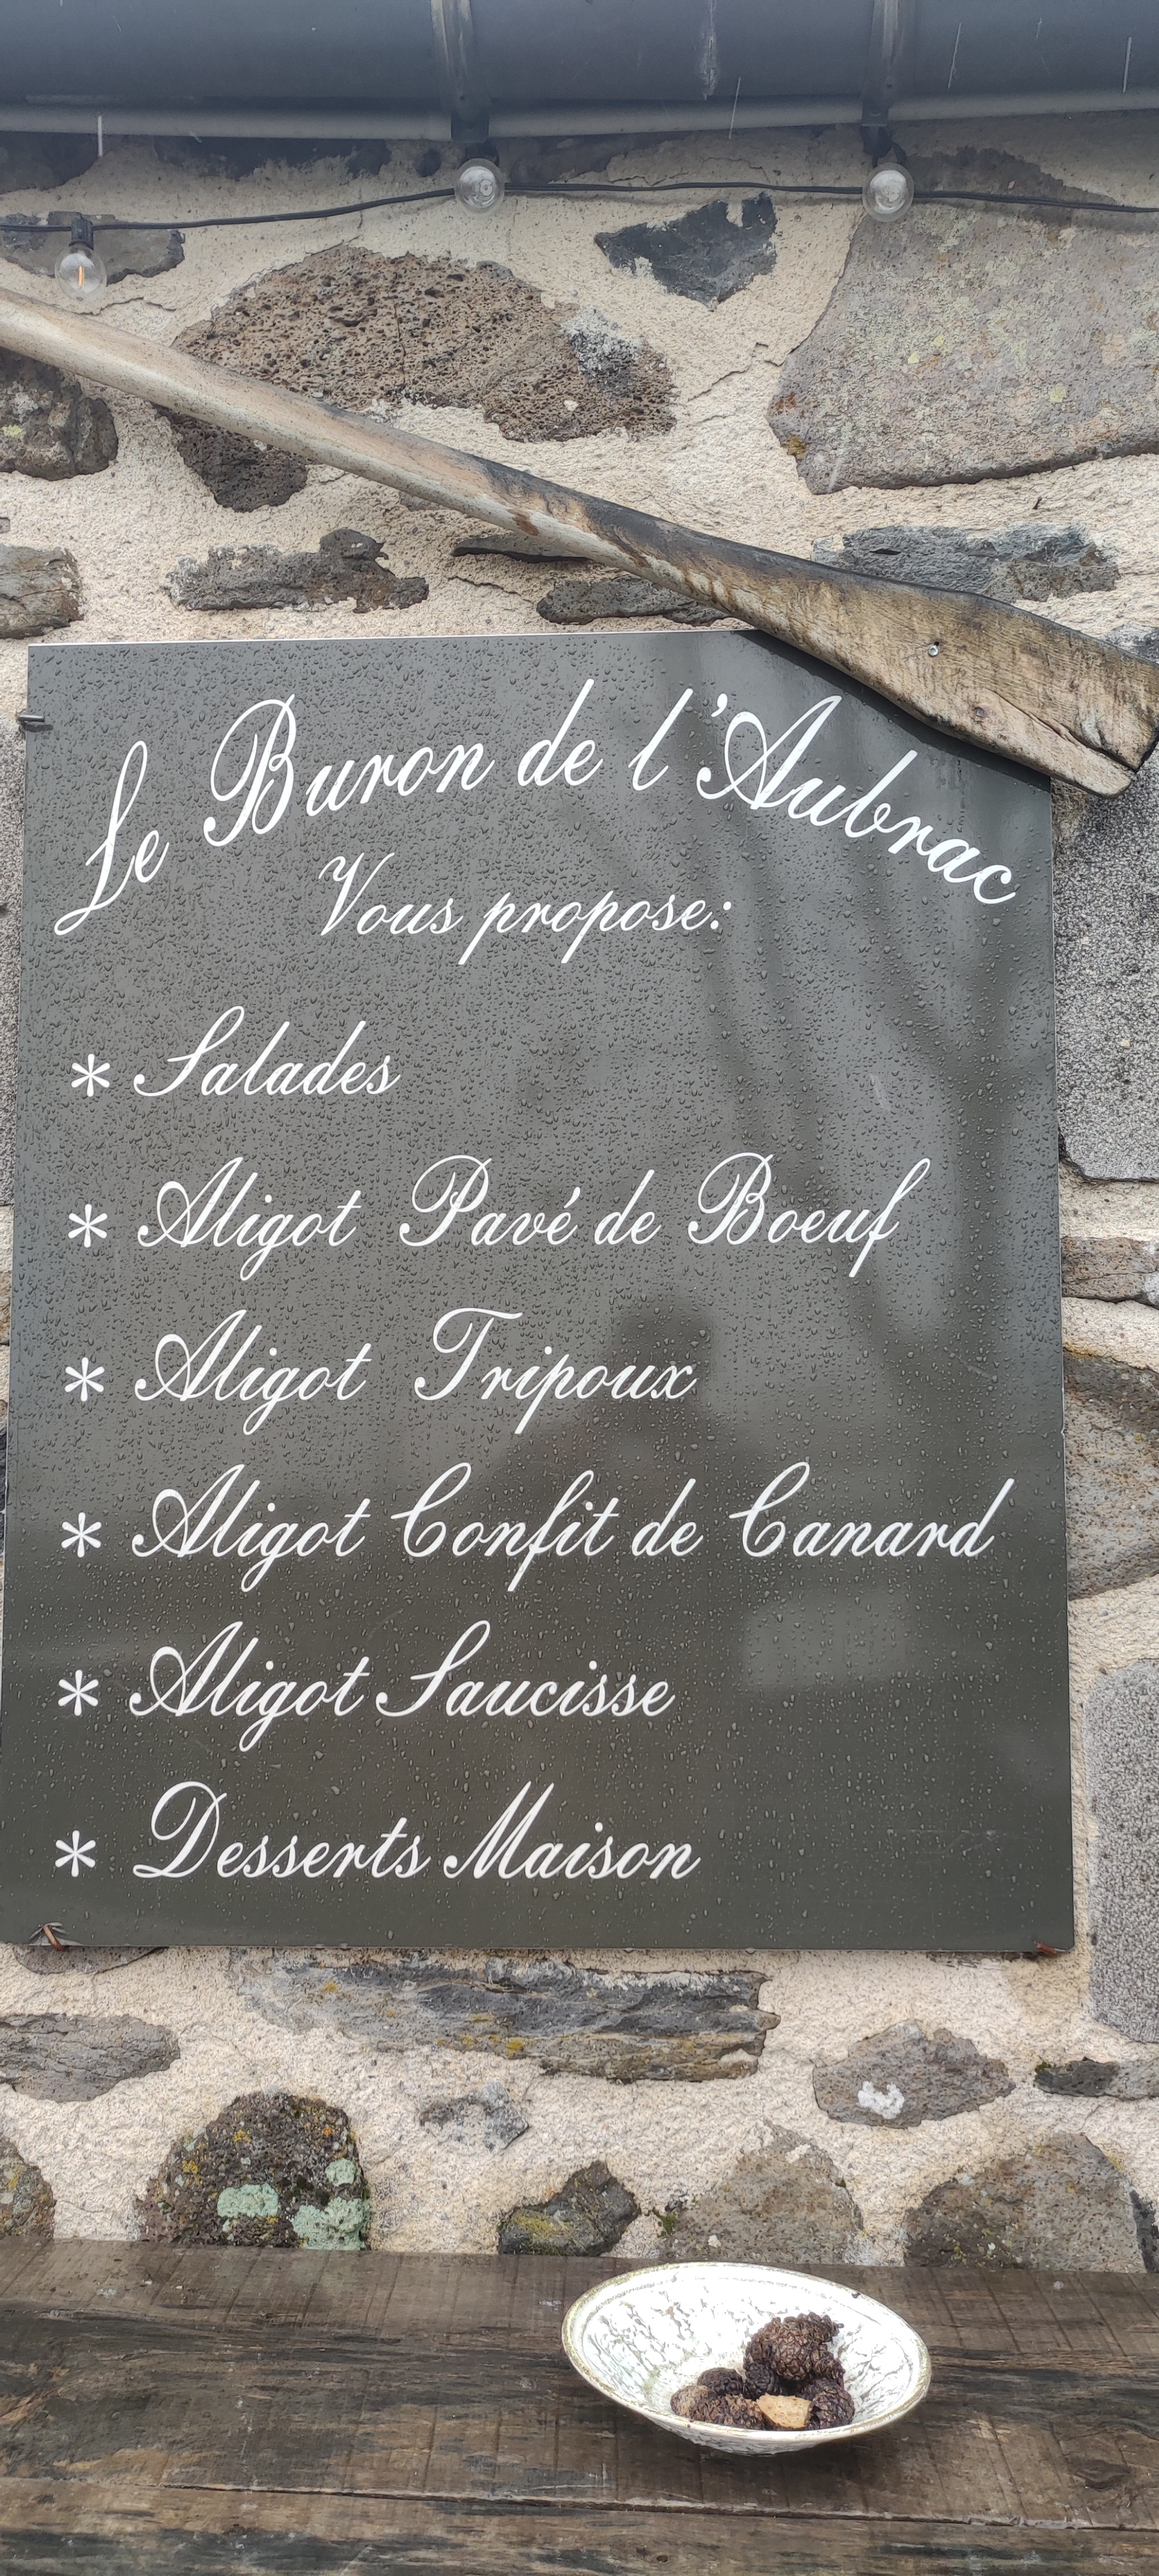 Le Buron de l'Aubrac
Vous propose:
* Salades
* Aligot Pavé de Boeuf
* Aligot Tripoux
* Aligot Confit de Canard
* Aligot Saucisse
* Desserts Maison